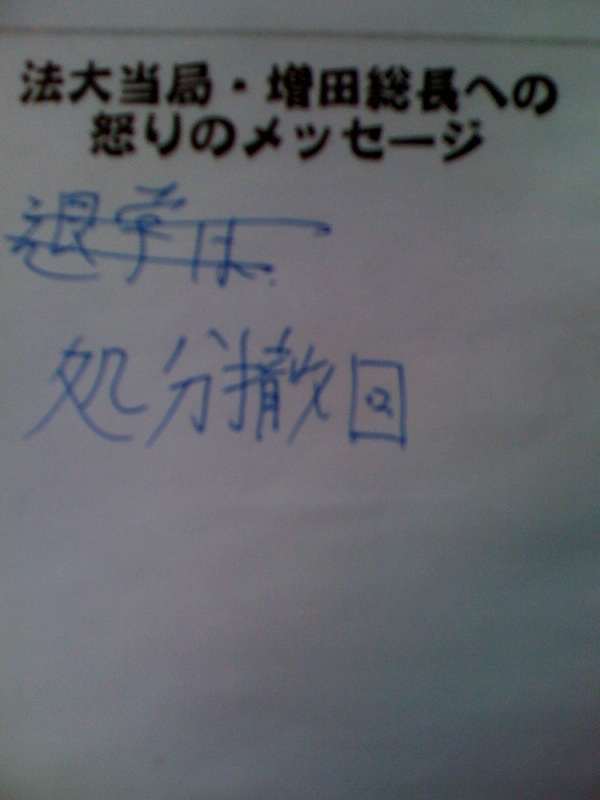 法大当局・増田総長への
怒りのメッセージ
退学は
処分撤回